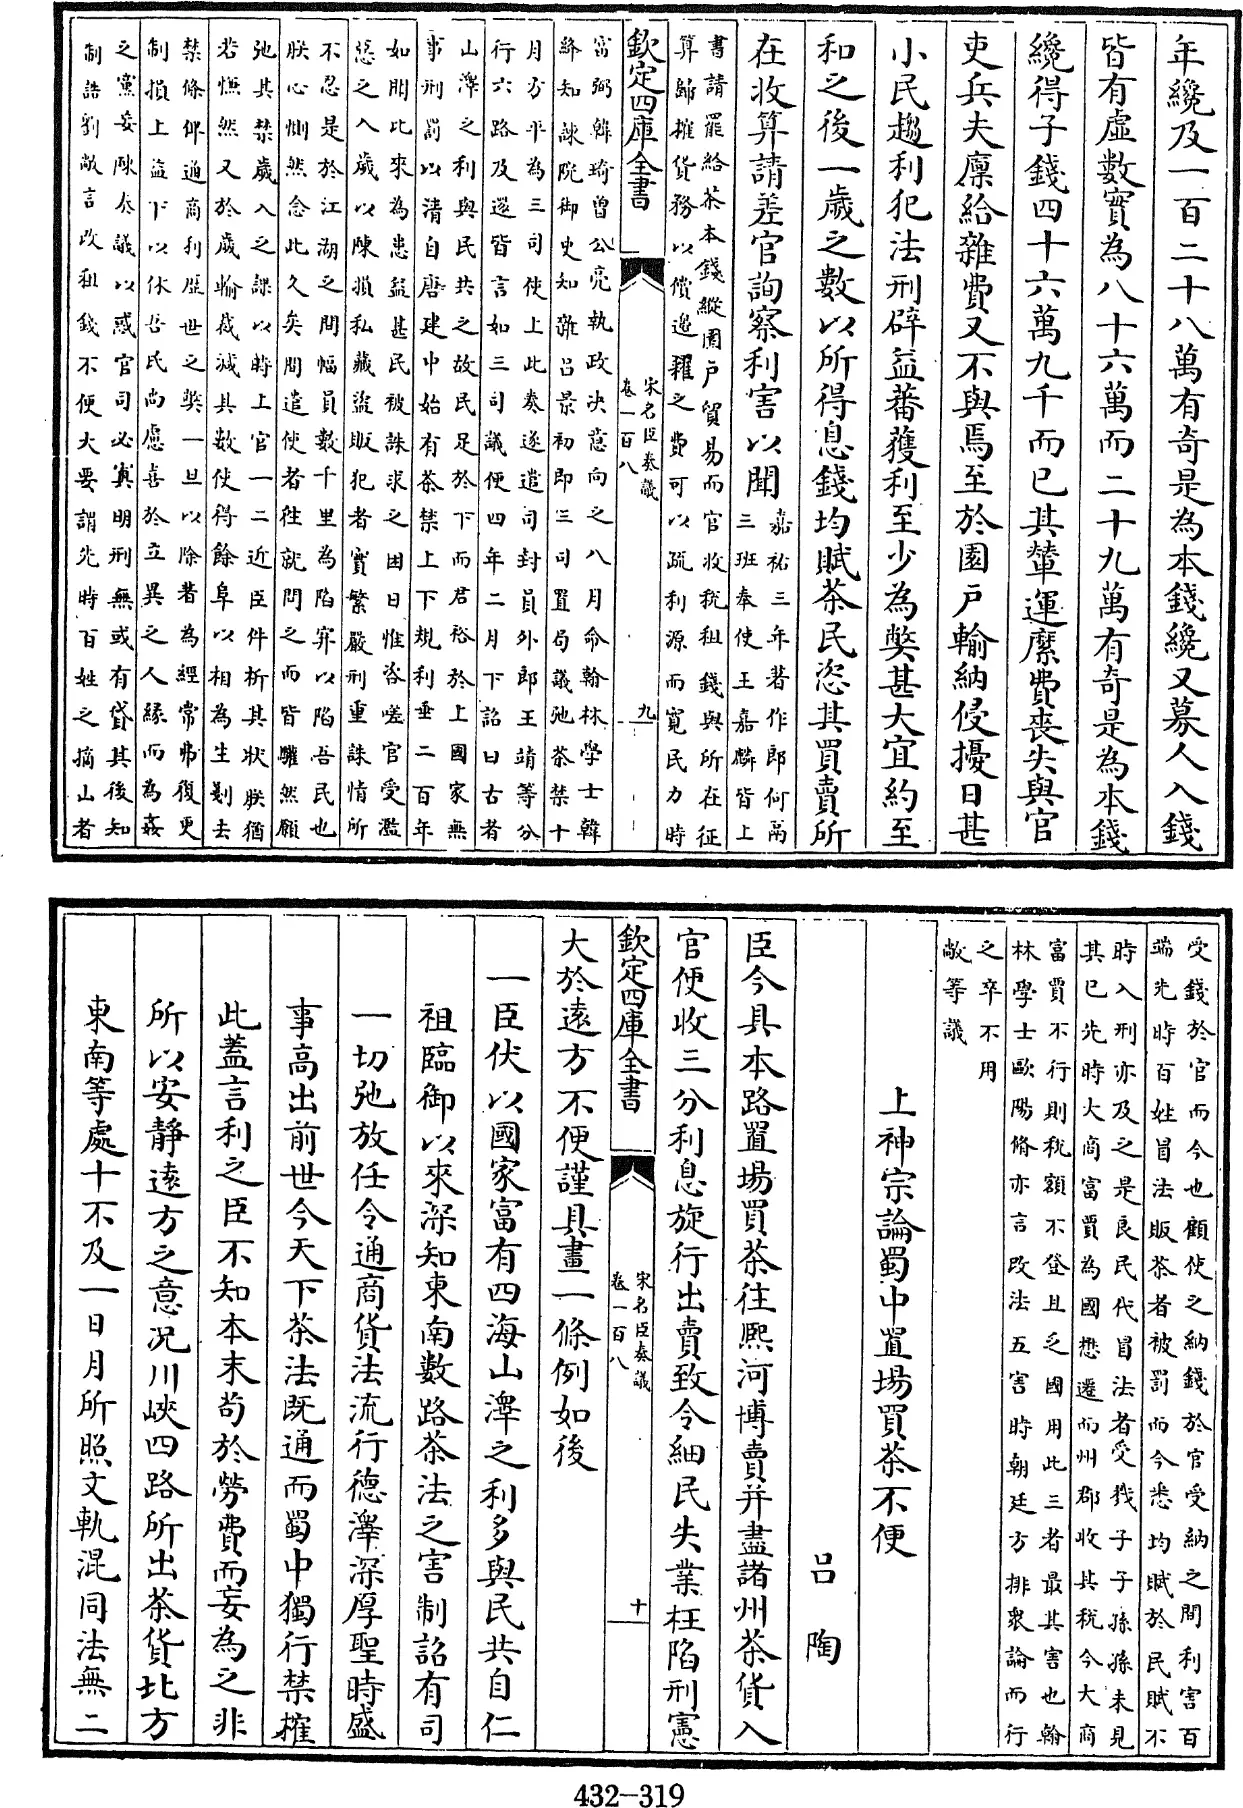 年纔及一百二十八萬有奇是為本錢纔又募人入錢
皆有虛數實為八十六萬而二十九萬有奇是為本錢
纔得子錢四十六萬九千而已其輦運縻費喪失與官
吏兵夫廪給雜費又不與焉至於園戸輸納侵擾日甚
小民趨利犯法刑辟益蕃獲利至少為弊甚大宜約至
和之後一歲之數以所得息錢均賦茶民恣其買賣所
在收算請差官詢察利害以聞
嘉祐三年著作郎何鬲
三班奉使王嘉麟皆上
書請罷給茶本錢縱園戸貿易而官收稅租錢與所在征
算歸搉貨務以償邊糴之費可以疏利源而寬民力時
欽定四庫全書
宋名臣奏議
卷一百八
九
富弼韓琦曾公亮執政决意向之八月命翰林學士韓
絳知諫院御史知雜吕景初即三司置局議弛茶禁十
月方平為三司使上此奏遂遣司封員外郎王靖等分
行六路及還皆言如三司議便四年二月下詔曰古者
山澤之利與民共之故民足於下而君裕於上國家無
事刑罰以清自唐建中始有茶禁上下規利垂二百年
如聞比來為患益甚民被誅求之困日惟咨嗟官受濫
惡之入歲以陳損私藏盜販犯者實繁嚴刑重誅情所
不忍是於江湖之間幅員數千里為陷穽以陷吾民也
朕心惻然念此久矣間遣使者往就問之而皆驩然願
弛其禁歲入之課以時上官一二近臣件析其狀朕猶
若慊然又於歲輸裁減其數使得餘阜以相為生剗去
禁條俾通商利歷世之弊一旦以除著為經常弗復更
制損上益下以休吾民尚慮喜於立異之人緣而為姦
之黨妄陳奏議以惑官司必寘明刑無或有貸其後知
制誥劉敞言改租錢不便大要謂先時百姓之摘山者
受錢於官而今也顧使之納錢於官受納之間利害百
端先時百姓冒法販茶者被罰而今悉均賦於民賦不
時入刑亦及之是良民代冒法者受戮子子孫孫未見
其已先時大商富賈為國懋遷而州郡收其稅今大商
富賈不行則稅額不登且乏國用此三者最其害也翰
林學士歐陽脩亦言改法五害時朝廷方排衆論而行
之卒不用
敞等議
上神宗論蜀中置場買茶不便
吕陶
臣今具本路置場買茶往熙河博賣并盡諸州茶貨入
官便收三分利息旋行出賣致令細民失業枉陷刑憲
欽定四庫全書
宋名臣奏議
卷一百八
十
大於遠方不便謹具畫一條例如後
一臣伏以國家富有四海山澤之利多與民共自仁
祖臨御以來深知東南數路茶法之害制詔有司
一切弛放任令通商貨法流行德澤深厚聖時盛
事高出前世今天下茶法既通而蜀中獨行禁搉
此蓋言利之臣不知本末苟於勞費而妄為之非
所以安靜遠方之意況川峽四路所出茶貨北方
東南等處十不及一日月所照文軌混同法無二
432-319